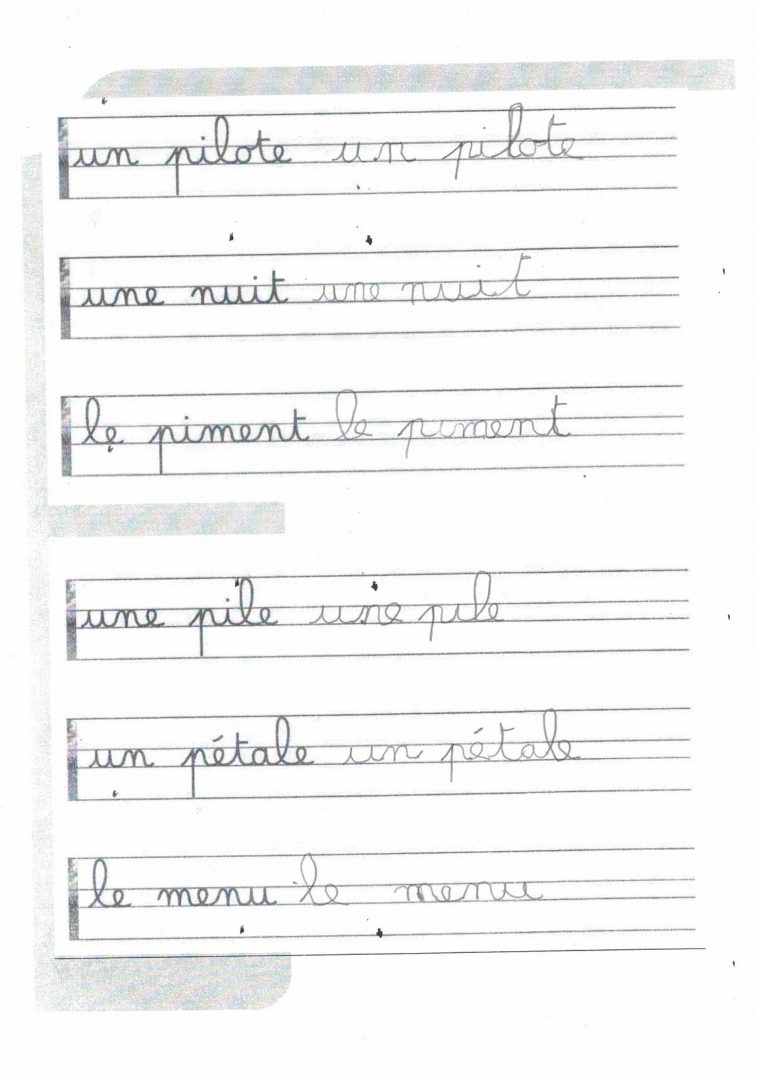 un pilote un pilote
une nuit une nuit
le piment le piment
une pile une pile
un pétale un pétale
le menu le menu